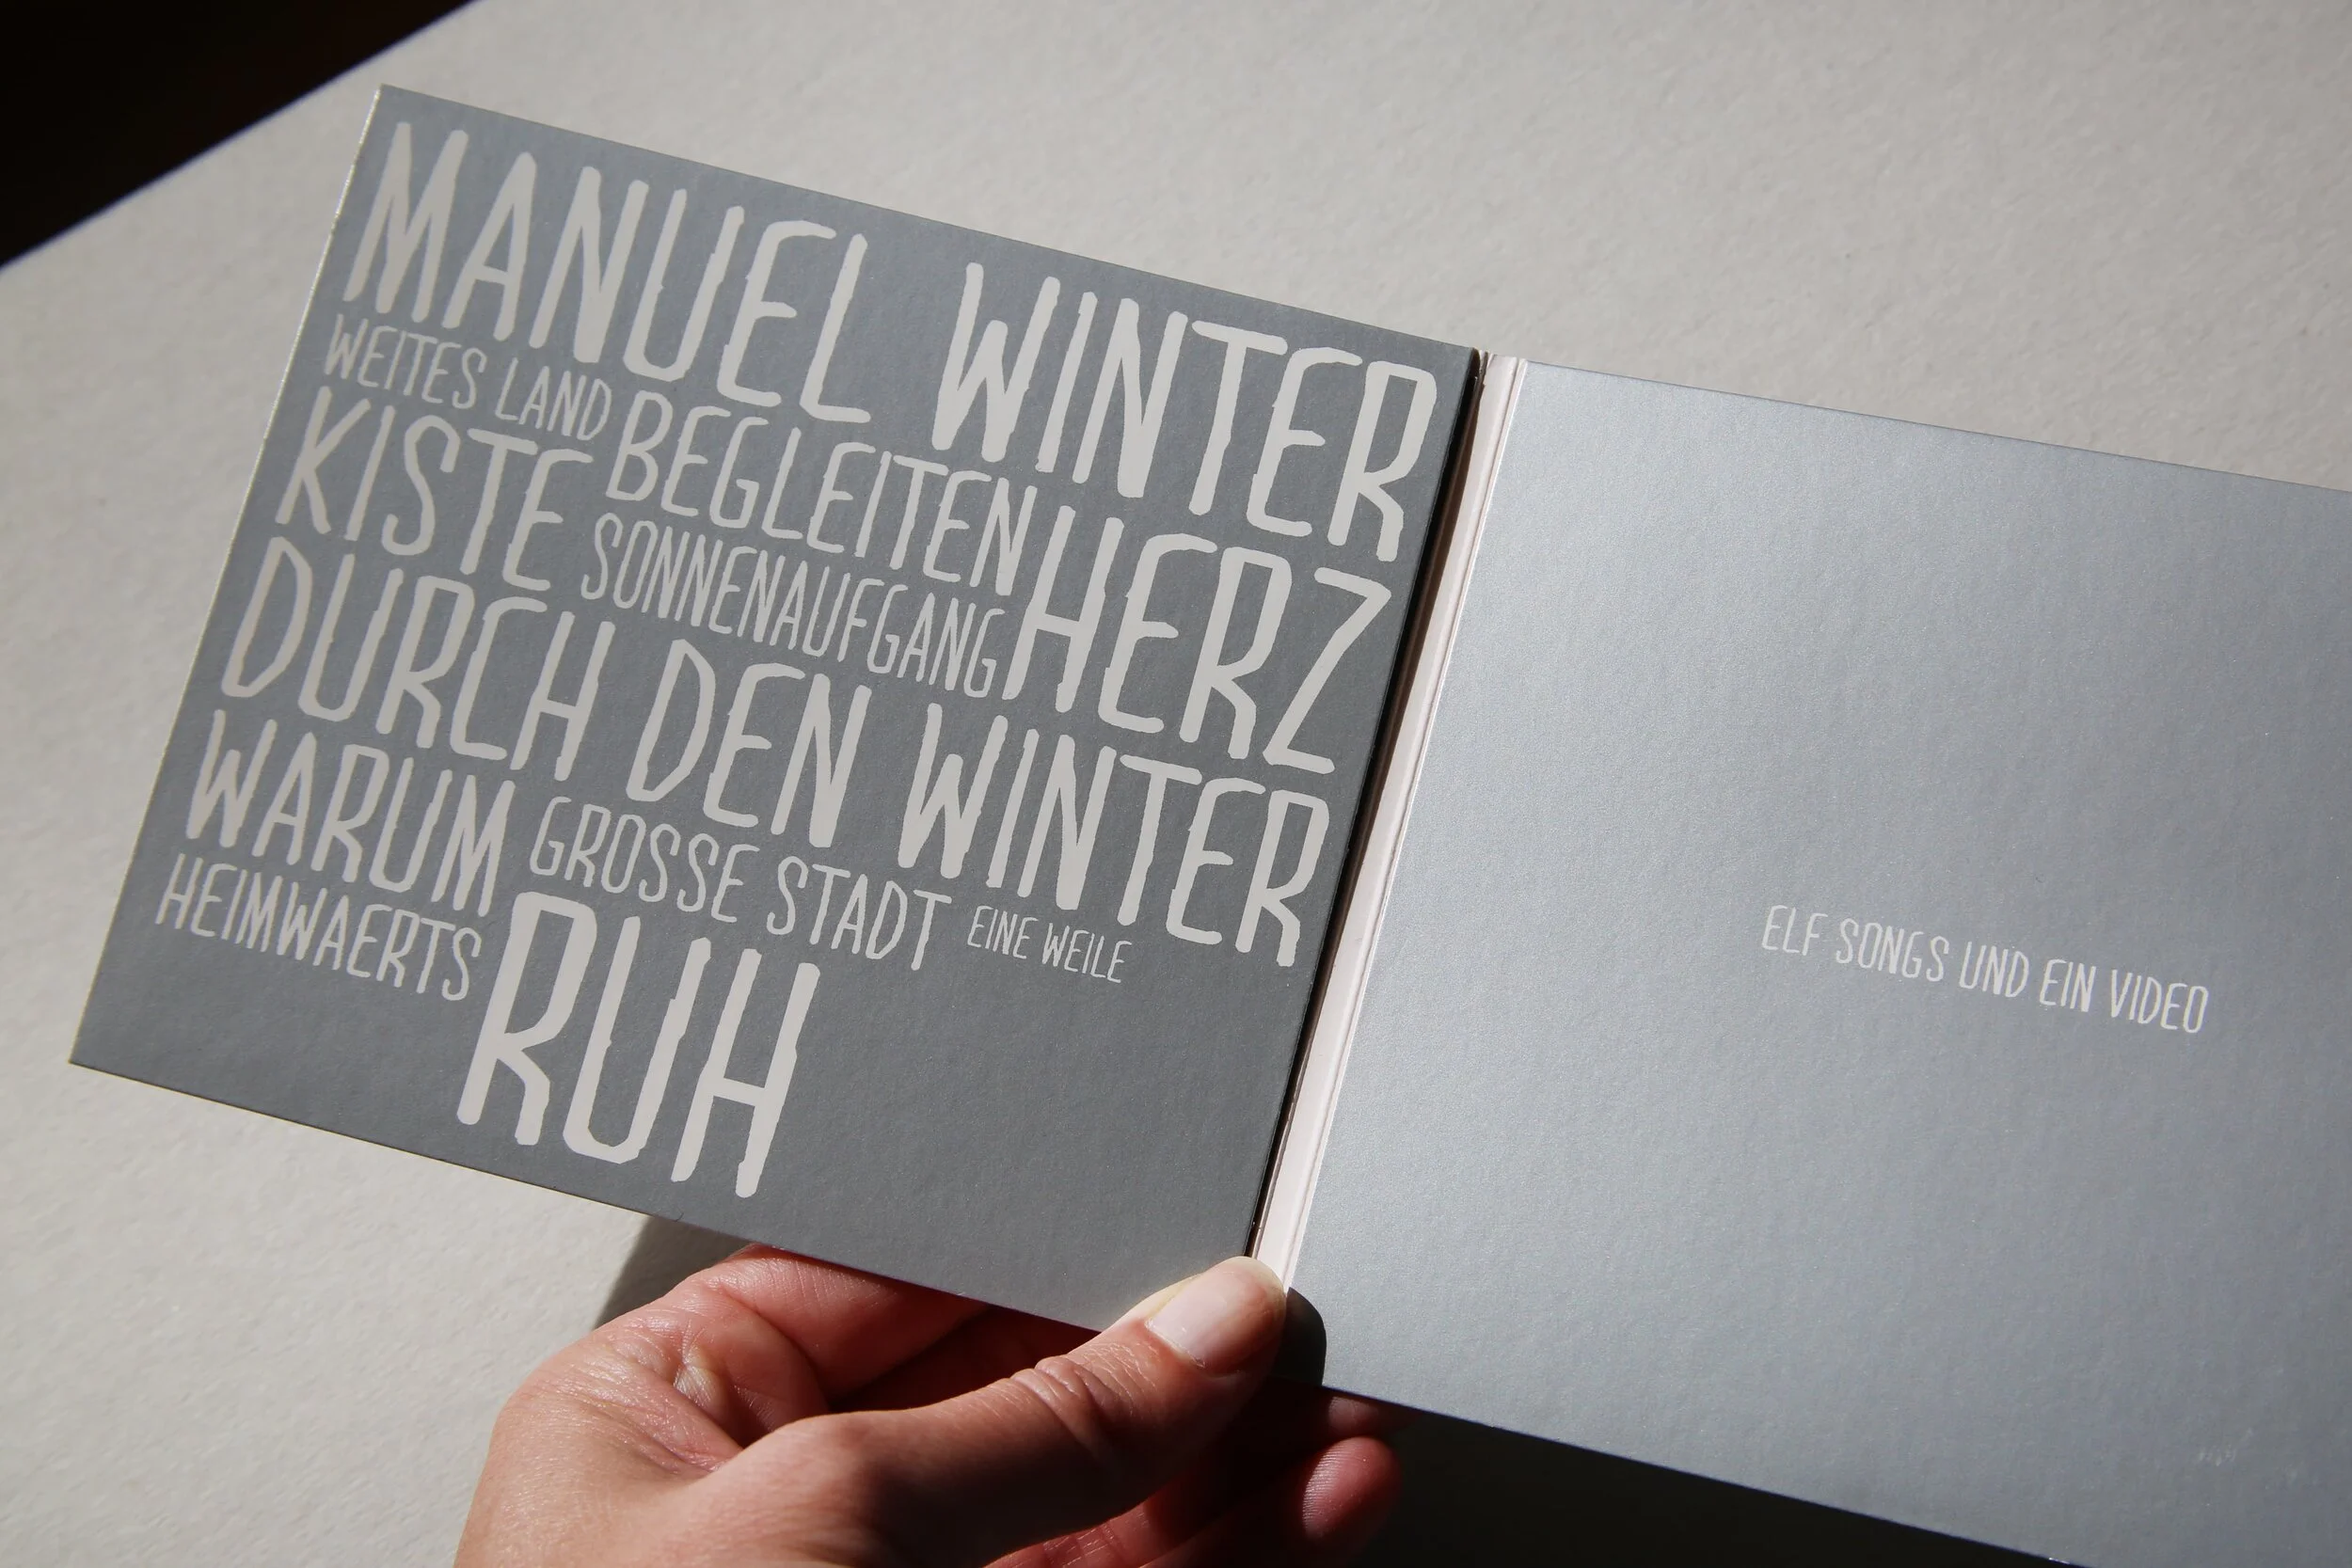 MANUEL WINTER
WEITES LAND BEGLEITEN HERZ
KISTE SONNENAUFGANG
DURCH DEN WINTER
WARUM GROSSE STADT EINE WEILE
HEIMWAERTS RUH
ELF SONGS UND EIN VIDEO